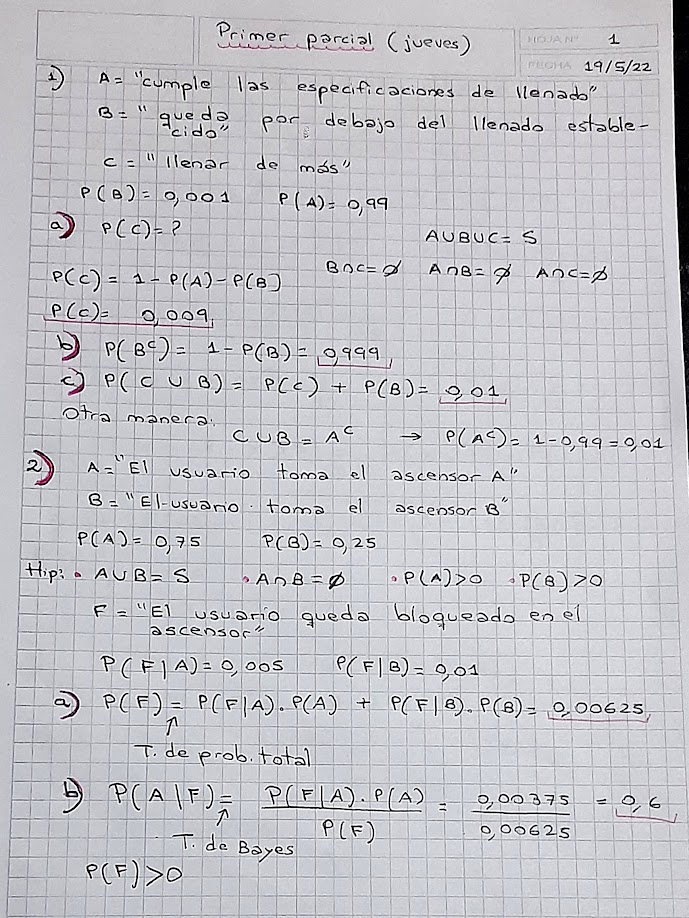 Primer parcial (jueves)
HOJA Nº 1
FECHA 19/5/22
1) A = "cumple las especificaciones de llenado"
B = "queda por debajo del llenado estable-
cido"
C = "llenar de más"
P(B) = 0,001 P(A) = 0,99
a) P(C) = ?
A∪B∪C = S
P(C) = 1 - P(A) - P(B) B∩C = ∅ A∩B = ∅ A∩C = ∅
P(C) = 0,009
b) P(Bᶜ) = 1 - P(B) = 0,999
c) P(C ∪ B) = P(C) + P(B) = 0,01
Otra manera:
C∪B = Aᶜ → P(Aᶜ) = 1 - 0,99 = 0,01
2) A = "El usuario toma el ascensor A"
B = "El usuario toma el ascensor B"
P(A) = 0,75 P(B) = 0,25
Hip: • A∪B = S • A∩B = ∅ • P(A)>0 • P(B)>0
F = "El usuario queda bloqueado en el
ascensor"
P(F|A) = 0,005 P(F|B) = 0,01
a) P(F) = P(F|A).P(A) + P(F|B).P(B) = 0,00625
↑
T. de prob. total
b) P(A|F) = P(F|A).P(A) / P(F) = 0,00375 / 0,00625 = 0,6
↑
T. de Bayes
P(F)>0